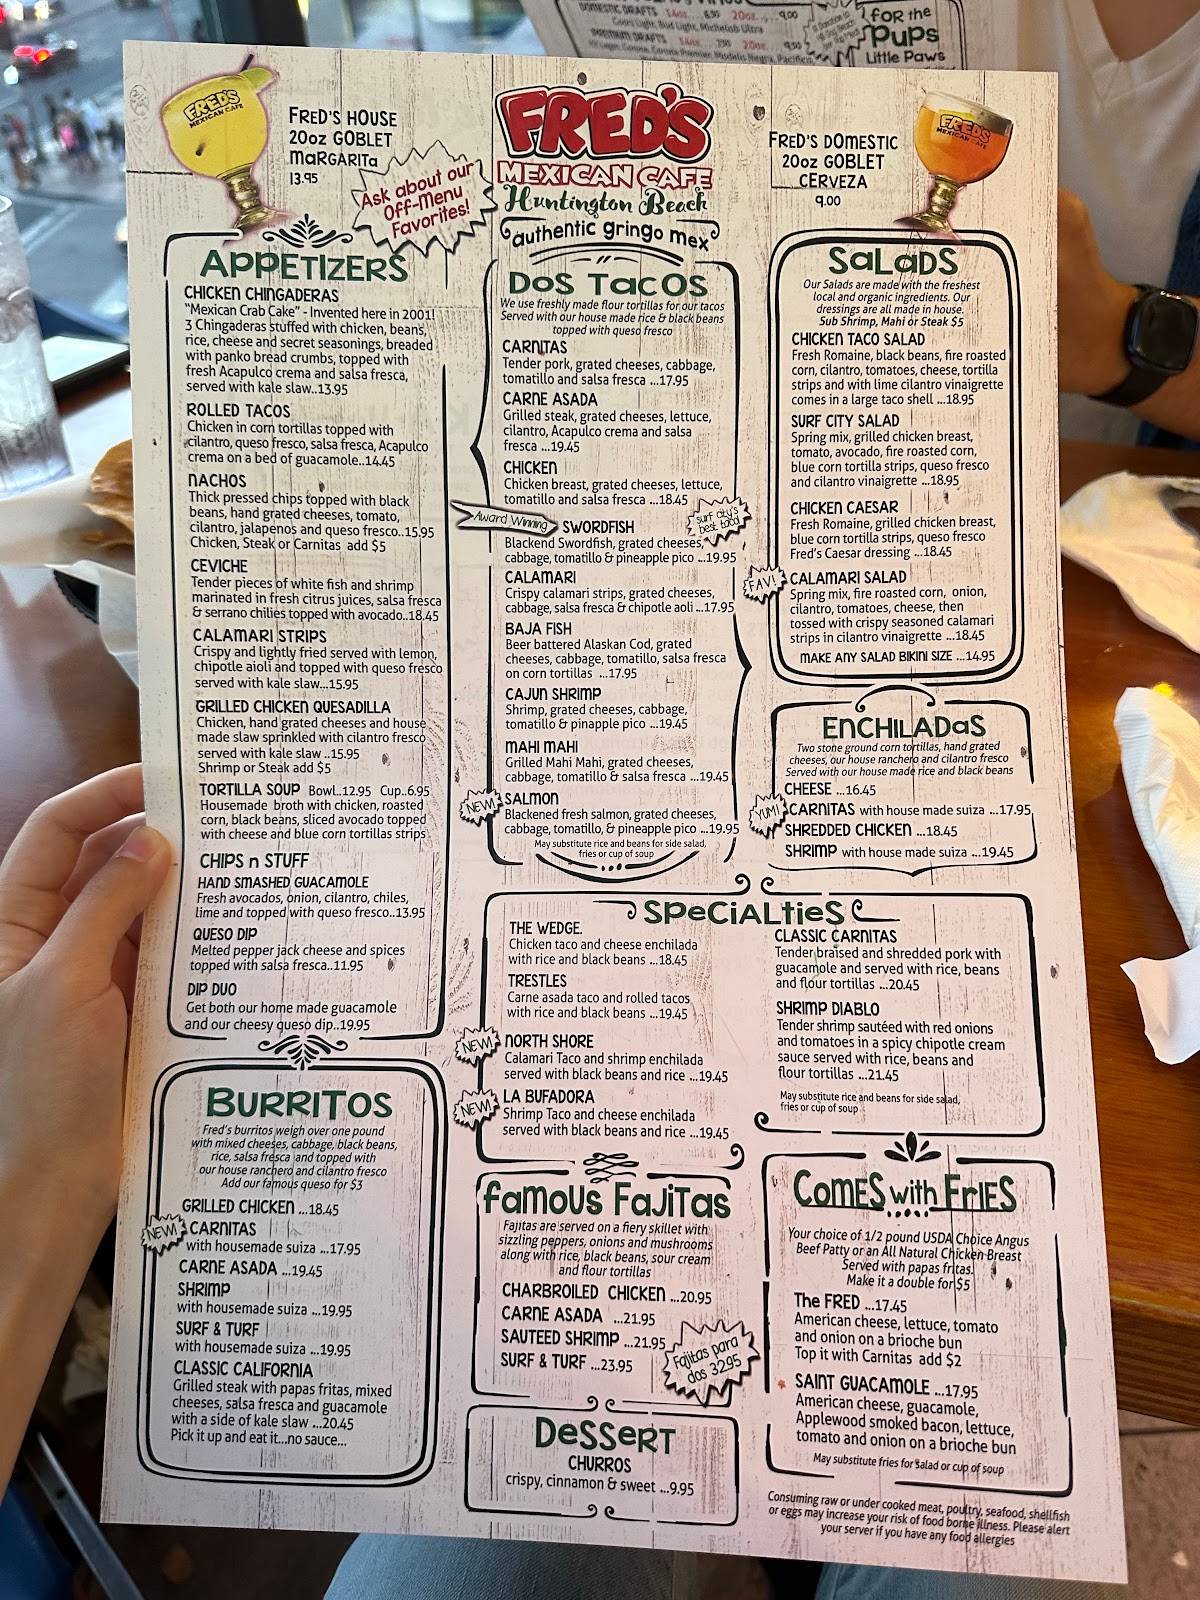 DOMESTIC DRAFTS 14oz. 6.50 20oz. 9.00
Coors Light, Bud Light, Michelob Ultra
PREMIUM DRAFTS 14oz. 7.50 20oz. 9.50
FOR the
Pups
Little Paws
FRED'S
MEXICAN CAFE
FRED'S HOUSE
20oz GOBLET
MARGARITA
13.95
Ask about our
Off-Menu
Favorites!
FRED'S
MEXICAN CAFE
Huntington Beach
authentic gringo mex
FRED'S DOMESTIC
20oz GOBLET
CERVEZA
9.00
FRED'S
MEXICAN CAFE
APPETIZERS
CHICKEN CHINGADERAS
"Mexican Crab Cake" - Invented here in 2001!
3 Chingaderas stuffed with chicken, beans,
rice, cheese and secret seasonings, breaded
with panko bread crumbs, topped with
fresh Acapulco crema and salsa fresca,
served with kale slaw..13.95
ROLLED TACOS
Chicken in corn tortillas topped with
cilantro, queso fresco, salsa fresca, Acapulco
crema on a bed of guacamole..14.45
NACHOS
Thick pressed chips topped with black
beans, hand grated cheeses, tomato,
cilantro, jalapenos and queso fresco..15.95
Chicken, Steak or Carnitas add $5
CEVICHE
Tender pieces of white fish and shrimp
marinated in fresh citrus juices, salsa fresca
& serrano chilies topped with avocado..18.45
CALAMARI STRIPS
Crispy and lightly fried served with lemon,
chipotle aioli and topped with queso fresco
served with kale slaw...15.95
GRILLED CHICKEN QUESADILLA
Chicken, hand grated cheeses and house
made slaw sprinkled with cilantro fresco
served with kale slaw ..15.95
Shrimp or Steak add $5
TORTILLA SOUP Bowl..12.95 Cup..6.95
Housemade broth with chicken, roasted
corn, black beans, sliced avocado topped
with cheese and blue corn tortillas strips
CHIPS n STUFF
HAND SMASHED GUACAMOLE
Fresh avocados, onion, cilantro, chiles,
lime and topped with queso fresco..13.95
QUESO DIP
Melted pepper jack cheese and spices
topped with salsa fresca..11.95
DIP DUO
Get both our home made guacamole
and our cheesy queso dip..19.95
BURRITOS
Fred's burritos weigh over one pound
with mixed cheeses, cabbage, black beans,
rice, salsa fresca and topped with
our house ranchero and cilantro fresco
Add our famous queso for $3
GRILLED CHICKEN ...18.45
NEW!
CARNITAS
with housemade suiza ...17.95
CARNE ASADA ...19.45
SHRIMP
with housemade suiza ...19.95
SURF & TURF
with housemade suiza ...19.95
CLASSIC CALIFORNIA
Grilled steak with papas fritas, mixed
cheeses, salsa fresca and guacamole
with a side of kale slaw ...20.45
Pick it up and eat it...no sauce...
DOS TACOS
We use freshly made flour tortillas for our tacos
Served with our house made rice & black beans
topped with queso fresco
CARNITAS
Tender pork, grated cheeses, cabbage,
tomatillo and salsa fresca ...17.95
CARNE ASADA
Grilled steak, grated cheeses, lettuce,
cilantro, Acapulco crema and salsa
fresca ...19.45
CHICKEN
Chicken breast, grated cheeses, lettuce,
tomatillo and salsa fresca ...18.45
Award Winning
SWORDFISH
surf city's
best taco!
Blackend Swordfish, grated cheeses,
cabbage, tomatillo & pineapple pico ...19.95
CALAMARI
Crispy calamari strips, grated cheeses,
cabbage, salsa fresca & chipotle aoli ...17.95
BAJA FISH
Beer battered Alaskan Cod, grated
cheeses, cabbage, tomatillo, salsa fresca
on corn tortillas ...17.95
CAJUN SHRIMP
Shrimp, grated cheeses, cabbage,
tomatillo & pinapple pico ...19.45
MAHI MAHI
Grilled Mahi Mahi, grated cheeses,
cabbage, tomatillo & salsa fresca ...19.45
NEW!
SALMON
Blackened fresh salmon, grated cheeses,
cabbage, tomatillo, & pineapple pico ...19.95
May substitute rice and beans for side salad,
fries or cup of soup
SALADS
Our Salads are made with the freshest
local and organic ingredients. Our
dressings are all made in house.
Sub Shrimp, Mahi or Steak $5
CHICKEN TACO SALAD
Fresh Romaine, black beans, fire roasted
corn, cilantro, tomatoes, cheese, tortilla
strips and with lime cilantro vinaigrette
comes in a large taco shell ...18.95
SURF CITY SALAD
Spring mix, grilled chicken breast,
tomato, avocado, fire roasted corn,
blue corn tortilla strips, queso fresco
and cilantro vinaigrette ...18.95
CHICKEN CAESAR
Fresh Romaine, grilled chicken breast,
blue corn tortilla strips, queso fresco
Fred's Caesar dressing ...18.45
FAV!
CALAMARI SALAD
Spring mix, fire roasted corn, onion,
cilantro, tomatoes, cheese, then
tossed with crispy seasoned calamari
strips in cilantro vinaigrette ...18.45
MAKE ANY SALAD BIKINI SIZE ...14.95
ENCHILADAS
Two stone ground corn tortillas, hand grated
cheeses, our house ranchero and cilantro fresco
Served with our house made rice and black beans
CHEESE ...16.45
YUM!
CARNITAS with house made suiza ...17.95
SHREDDED CHICKEN ...18.45
SHRIMP with house made suiza ...19.45
SPECIALTIES
THE WEDGE.
Chicken taco and cheese enchilada
with rice and black beans ...18.45
TRESTLES
Carne asada taco and rolled tacos
with rice and black beans ...19.45
NEW!
NORTH SHORE
Calamari Taco and shrimp enchilada
served with black beans and rice ...19.45
NEW!
LA BUFADORA
Shrimp Taco and cheese enchilada
served with black beans and rice ...19.45
CLASSIC CARNITAS
Tender braised and shredded pork with
guacamole and served with rice, beans
and flour tortillas ...20.45
SHRIMP DIABLO
Tender shrimp sautéed with red onions
and tomatoes in a spicy chipotle cream
sauce served with rice, beans and
flour tortillas ...21.45
May substitute rice and beans for side salad,
fries or cup of soup
FAMOUS FAJITAS
Fajitas are served on a fiery skillet with
sizzling peppers, onions and mushrooms
along with rice, black beans, sour cream
and flour tortillas
CHARBROILED CHICKEN ...20.95
CARNE ASADA ...21.95
SAUTEED SHRIMP ...21.95
SURF & TURF ...23.95
Fajitas para
dos 32.95
DESSERT
CHURROS
crispy, cinnamon & sweet ...9.95
COMES with FRIES
Your choice of 1/2 pound USDA Choice Angus
Beef Patty or an All Natural Chicken Breast
Served with papas fritas.
Make it a double for $5
The FRED ...17.45
American cheese, lettuce, tomato
and onion on a brioche bun
Top it with Carnitas add $2
SAINT GUACAMOLE ...17.95
American cheese, guacamole,
Applewood smoked bacon, lettuce,
tomato and onion on a brioche bun
May substitute fries for salad or cup of soup
Consuming raw or under cooked meat, poultry, seafood, shellfish
or eggs may increase your risk of food borne illness. Please alert
your server if you have any food allergies